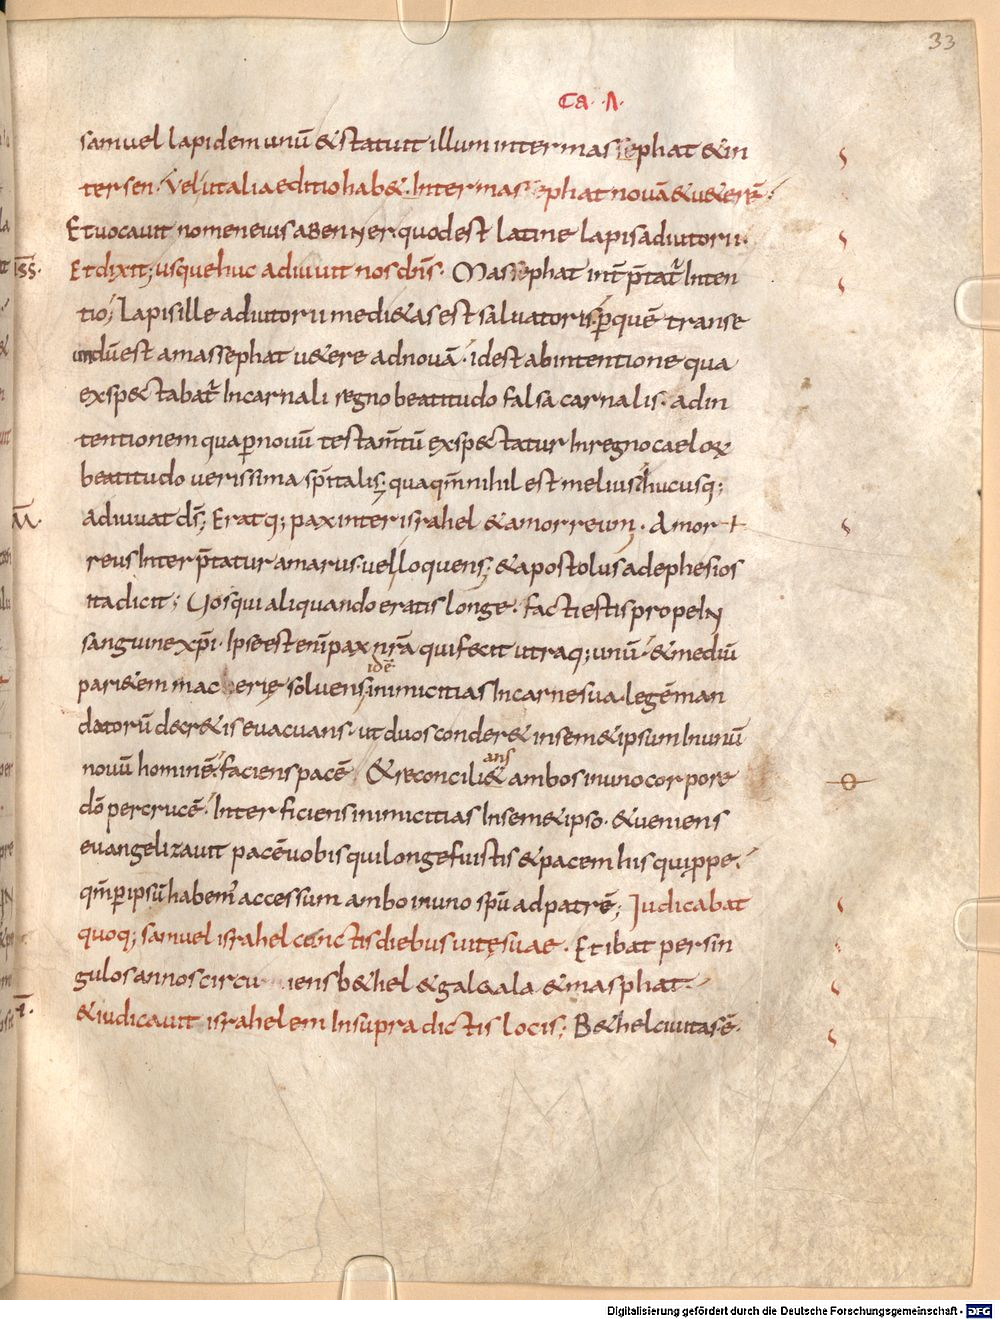 33
Ca · Λ ·
samuel lapidem unū & statuit illum inter massephat & in
ter sen · Vel ut alia editio hab& · Inter massephat nouā & u&erē ·
Et uocauit nomen eius aBenNer · quod est latine lapis adiutorii ·
Et dixit ; usque huc adiuuit nos dn̄s · Massephat int̄ p̄tat᷑ Inten
tio ; Lapis ille adiutorii medi&as est saluatoris · p̱ quē transe
undū est a massephat u&ere ad nouā · id est ab intentione qua
exsp&tabat᷑ In carnali regno beatitudo falsa carnalis · ad in
tentionem qua p̱ nouū testam̄tū exsp&tatur In regno caeloꝝ
beatitudo uerissima sp̄italis ; qua qm̄ nihil est melius huc usq;
adiuuat ds̄ ; Eratq; pax inter israhel & amorreum · Amor
reus Interp̄tatur amarus · uel loquens ; & apostolus ad ephesios
ita dicit ; Uos qui aliquando eratis longe · facti estis prope IN
sanguine xp̄i · Ipse est enī pax nr̄a qui fecit utraq; unū · & mediū
idē
pari&em macherię soluens inimicitias In carne sua · legē man
datorū decr&is euacuans · ut duos conder& in sem&ipsum In unū
ans
nouū hominē · faciens pacē · & reconcili& ambos in uno corpore
dō per crucē · Interficiens inimicitias In sem&ipso · & ueniens
euangelizauit pacē uobis qui longe fuistis & pacem his qui prope ·
qm̄ p̱ ipsū habem᷒ accessum ambo in uno spū ad patrē ; Iudicabat
quoq; samuel israhel cunctis diebus uitę suae · Et ibat per sin
gulos annos circu iens b&hel & galgala & masphat ·
& iudicauit israhelem In supradictis locis ; B&hel ciuitas ē ·
Digitalisierung gefördert durch die Deutsche Forschungsgemeinschaft · DFG